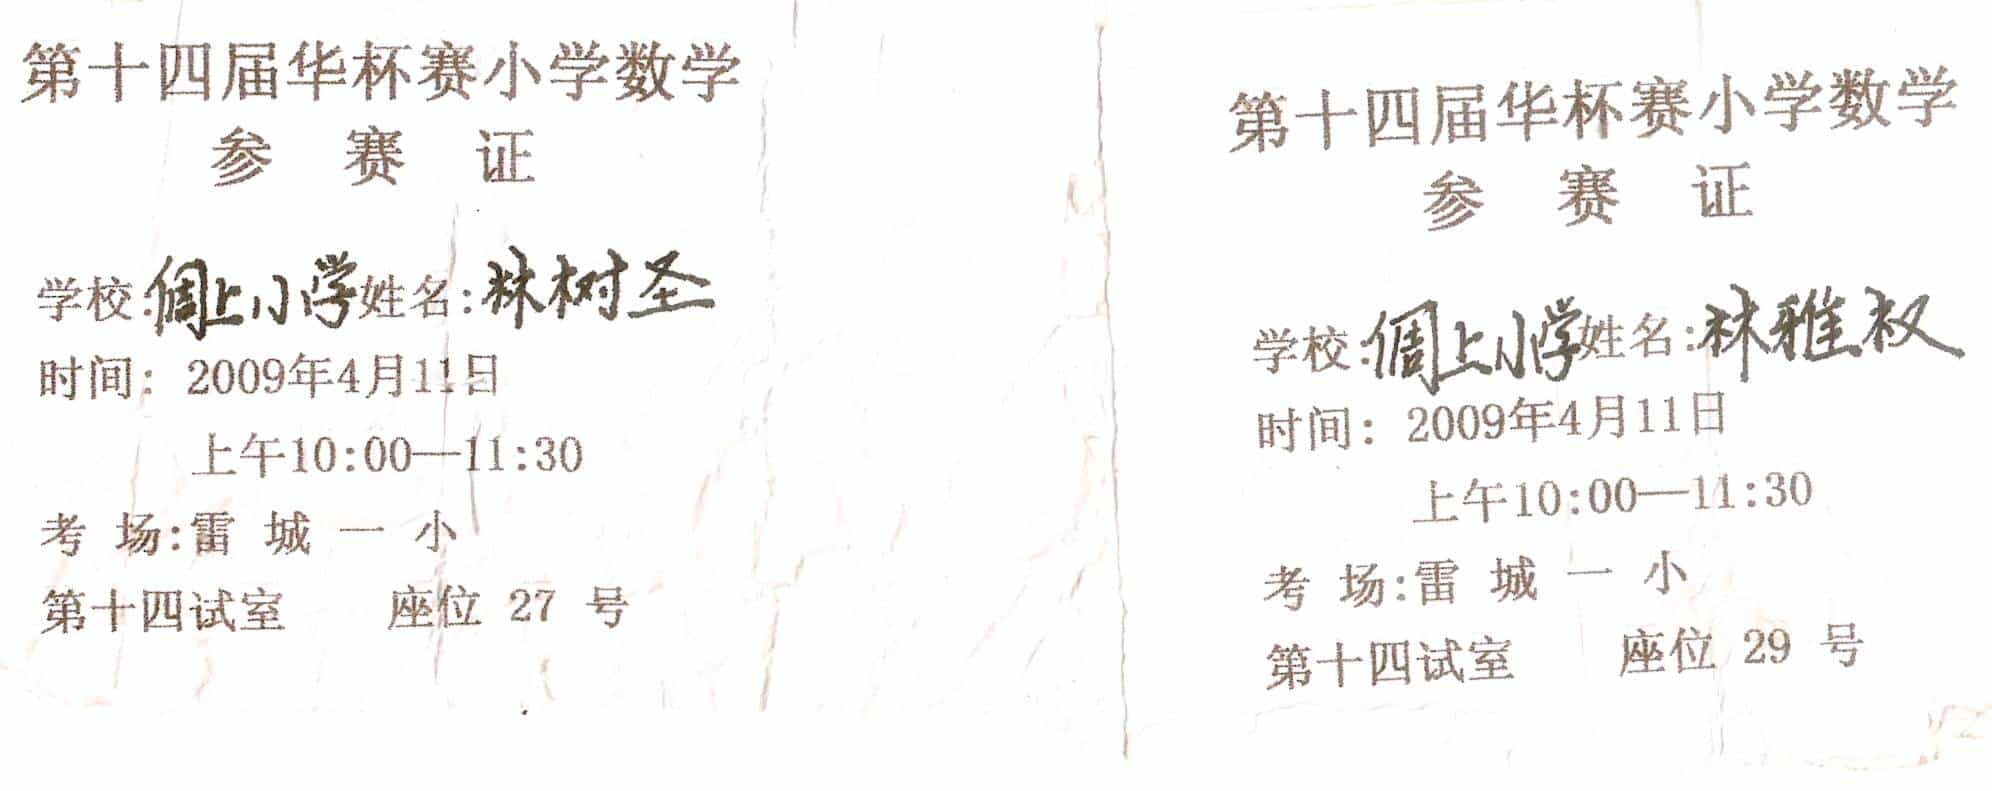 第十四届华杯赛小学数学
参 赛 证
学校:倜上小学姓名:林树圣
时间: 2009年4月11日
上午10:00—11:30
考 场:雷 城 一 小
第十四试室 座位 27 号
第十四届华杯赛小学数学
参 赛 证
学校:倜上小学姓名:林雅权
时间: 2009年4月11日
上午10:00—11:30
考 场:雷 城 一 小
第十四试室 座位 29 号